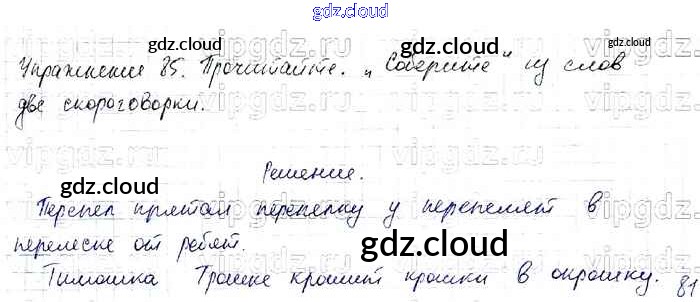 gdz.cloud
gdz.cloud gdz.cloud
Упражнение 85. Прочитайте. „Соберите" из слов
две скороговорки.
gdz.cloud
Решение.
gdz.cloud
Перепел прятал перепелку у перепелят в
перелеске от ребят.
gdz.cloud
Тимошка Трошке крошит крошки в окрошку.
81